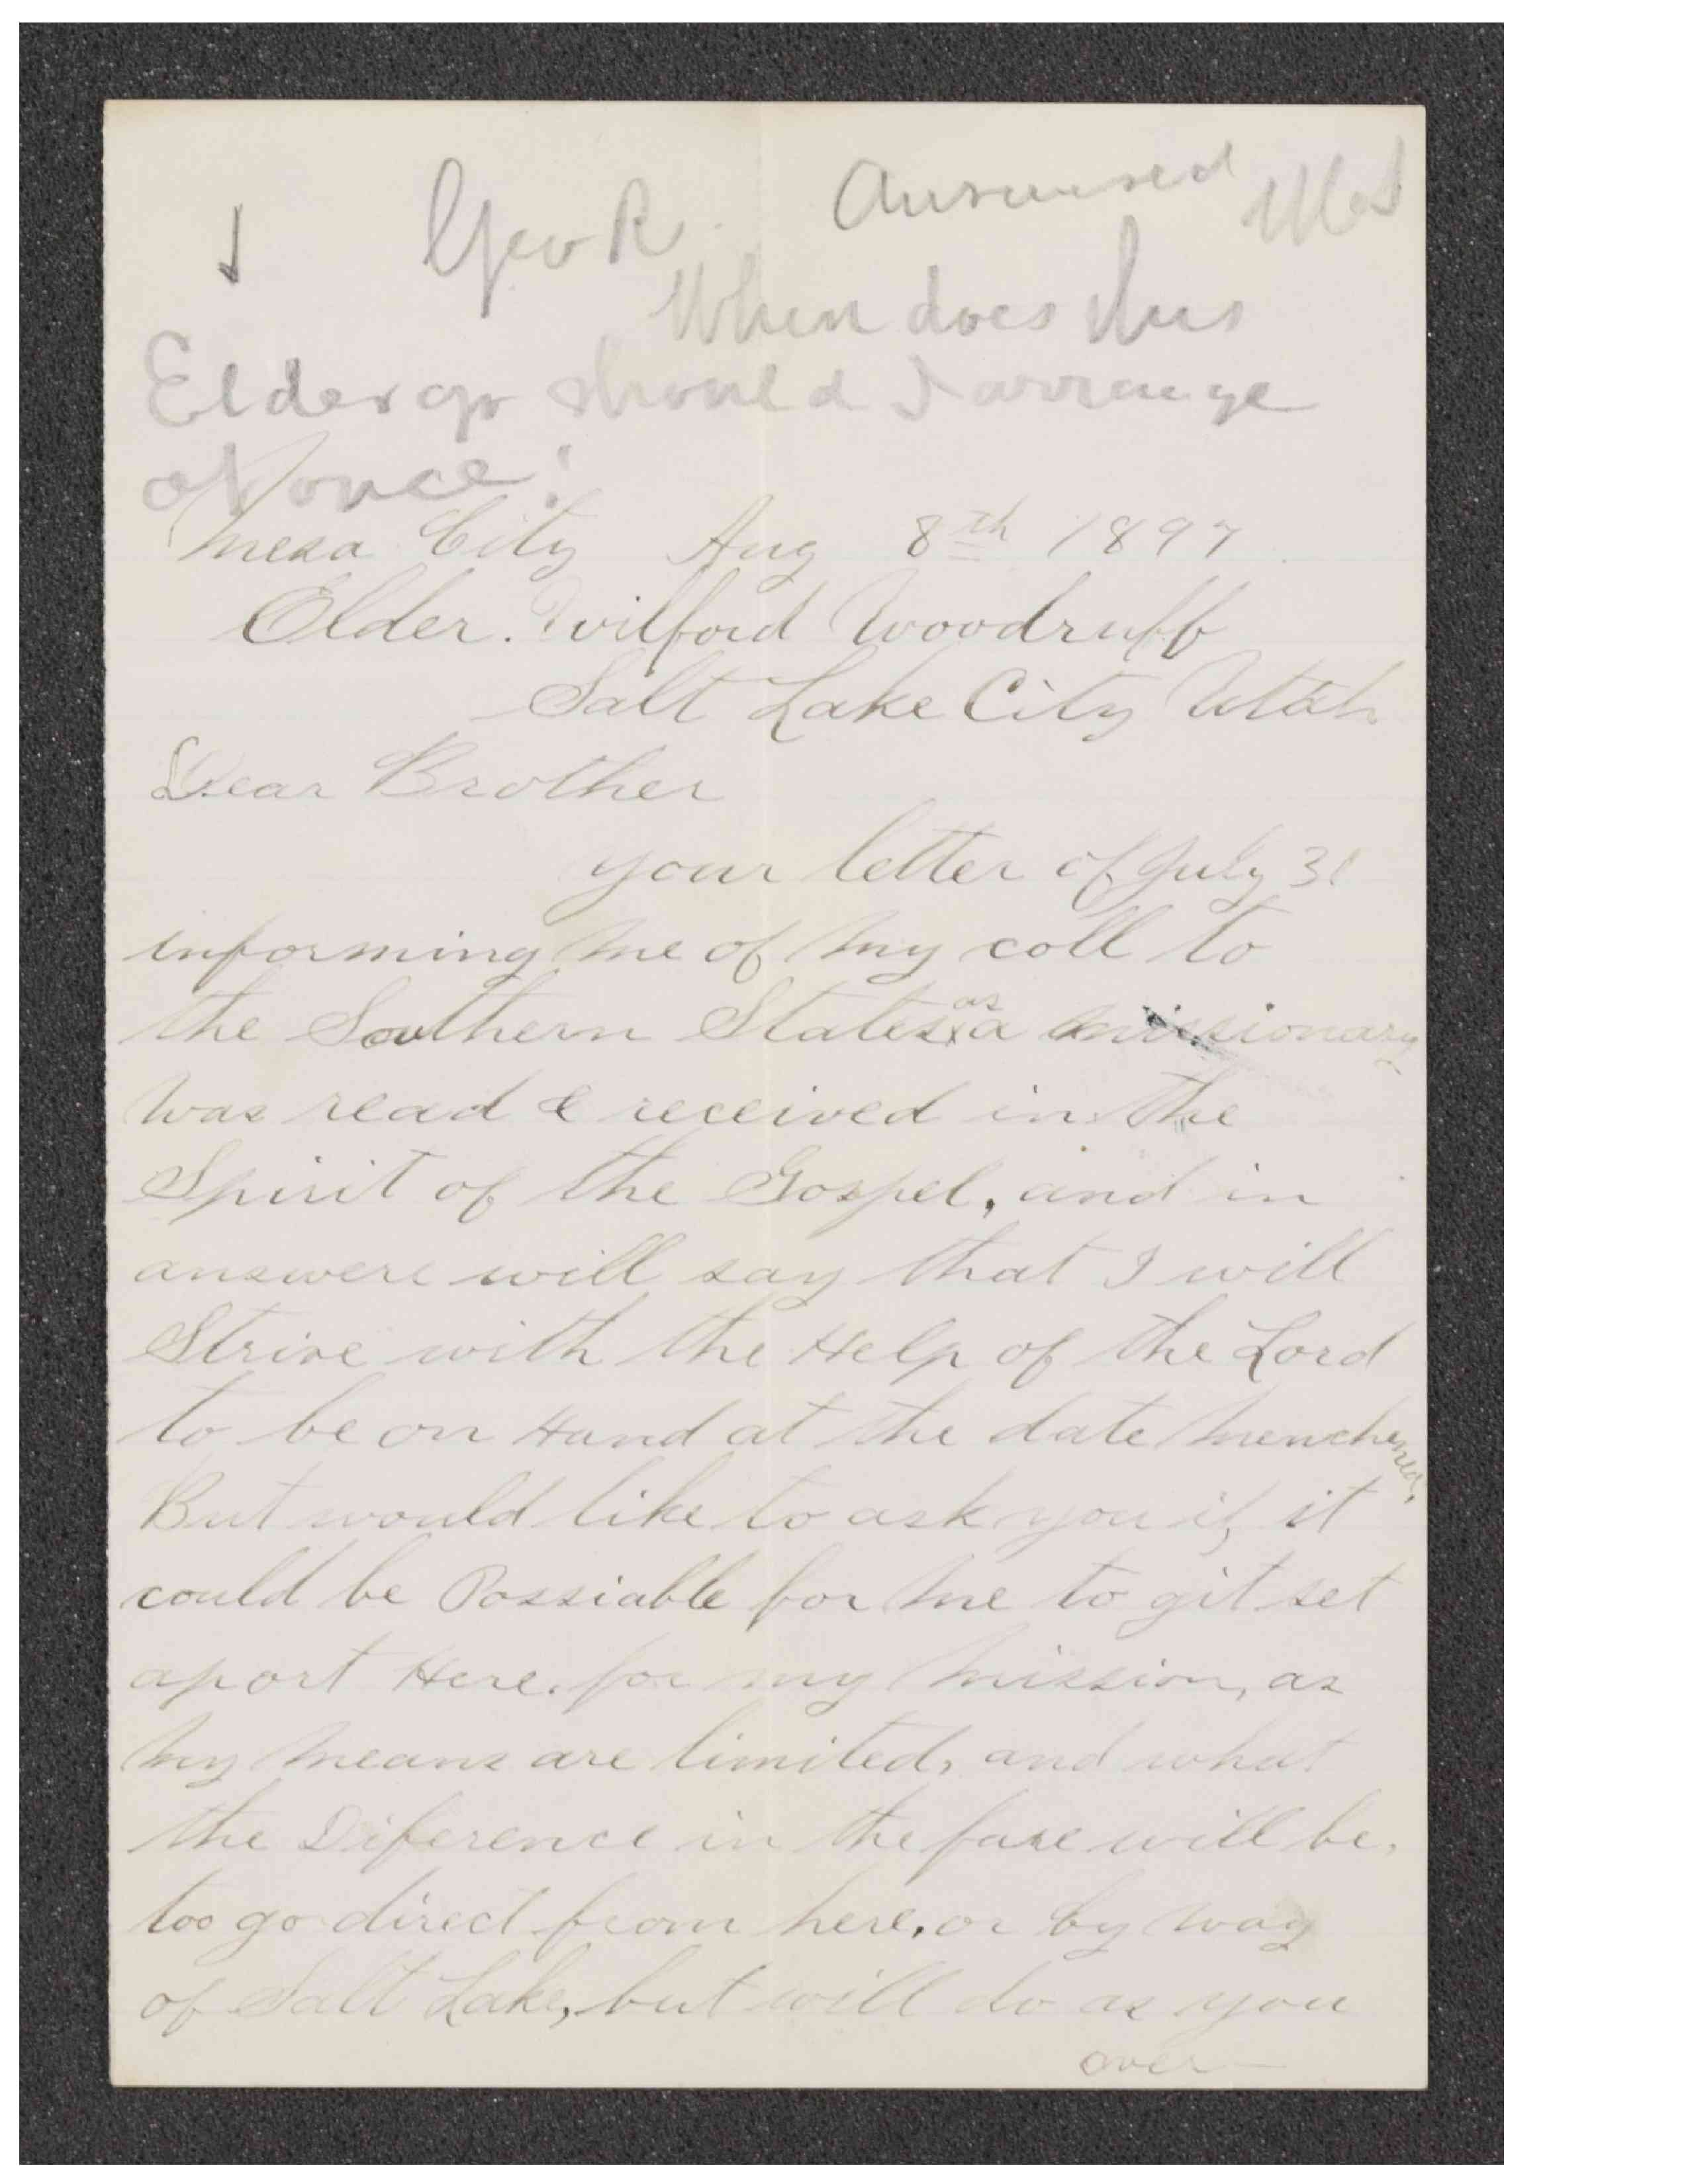 Geo R. Answered
When does this
Elder go should I arrange
at once?
Mesa City Aug 8th 1897
Elder. Wilford Woodruff
Salt Lake City Utah
Dear Brother
your letter of July 31
informing me of my coll to
the Southern States as a missionary
was read & received in the
Spirit of the Gospel, and in
answere will say that I will
Strive with the Help of the Lord
to be on Hand at the date menchened,
But would like to ask you if, it
could be Possiable for me to git set
aport Here. for my mission, as
my means are limited, and what
the Diference in the fare will be,
too go direct from here, or by way
of Salt Lake, but will do as you
over—